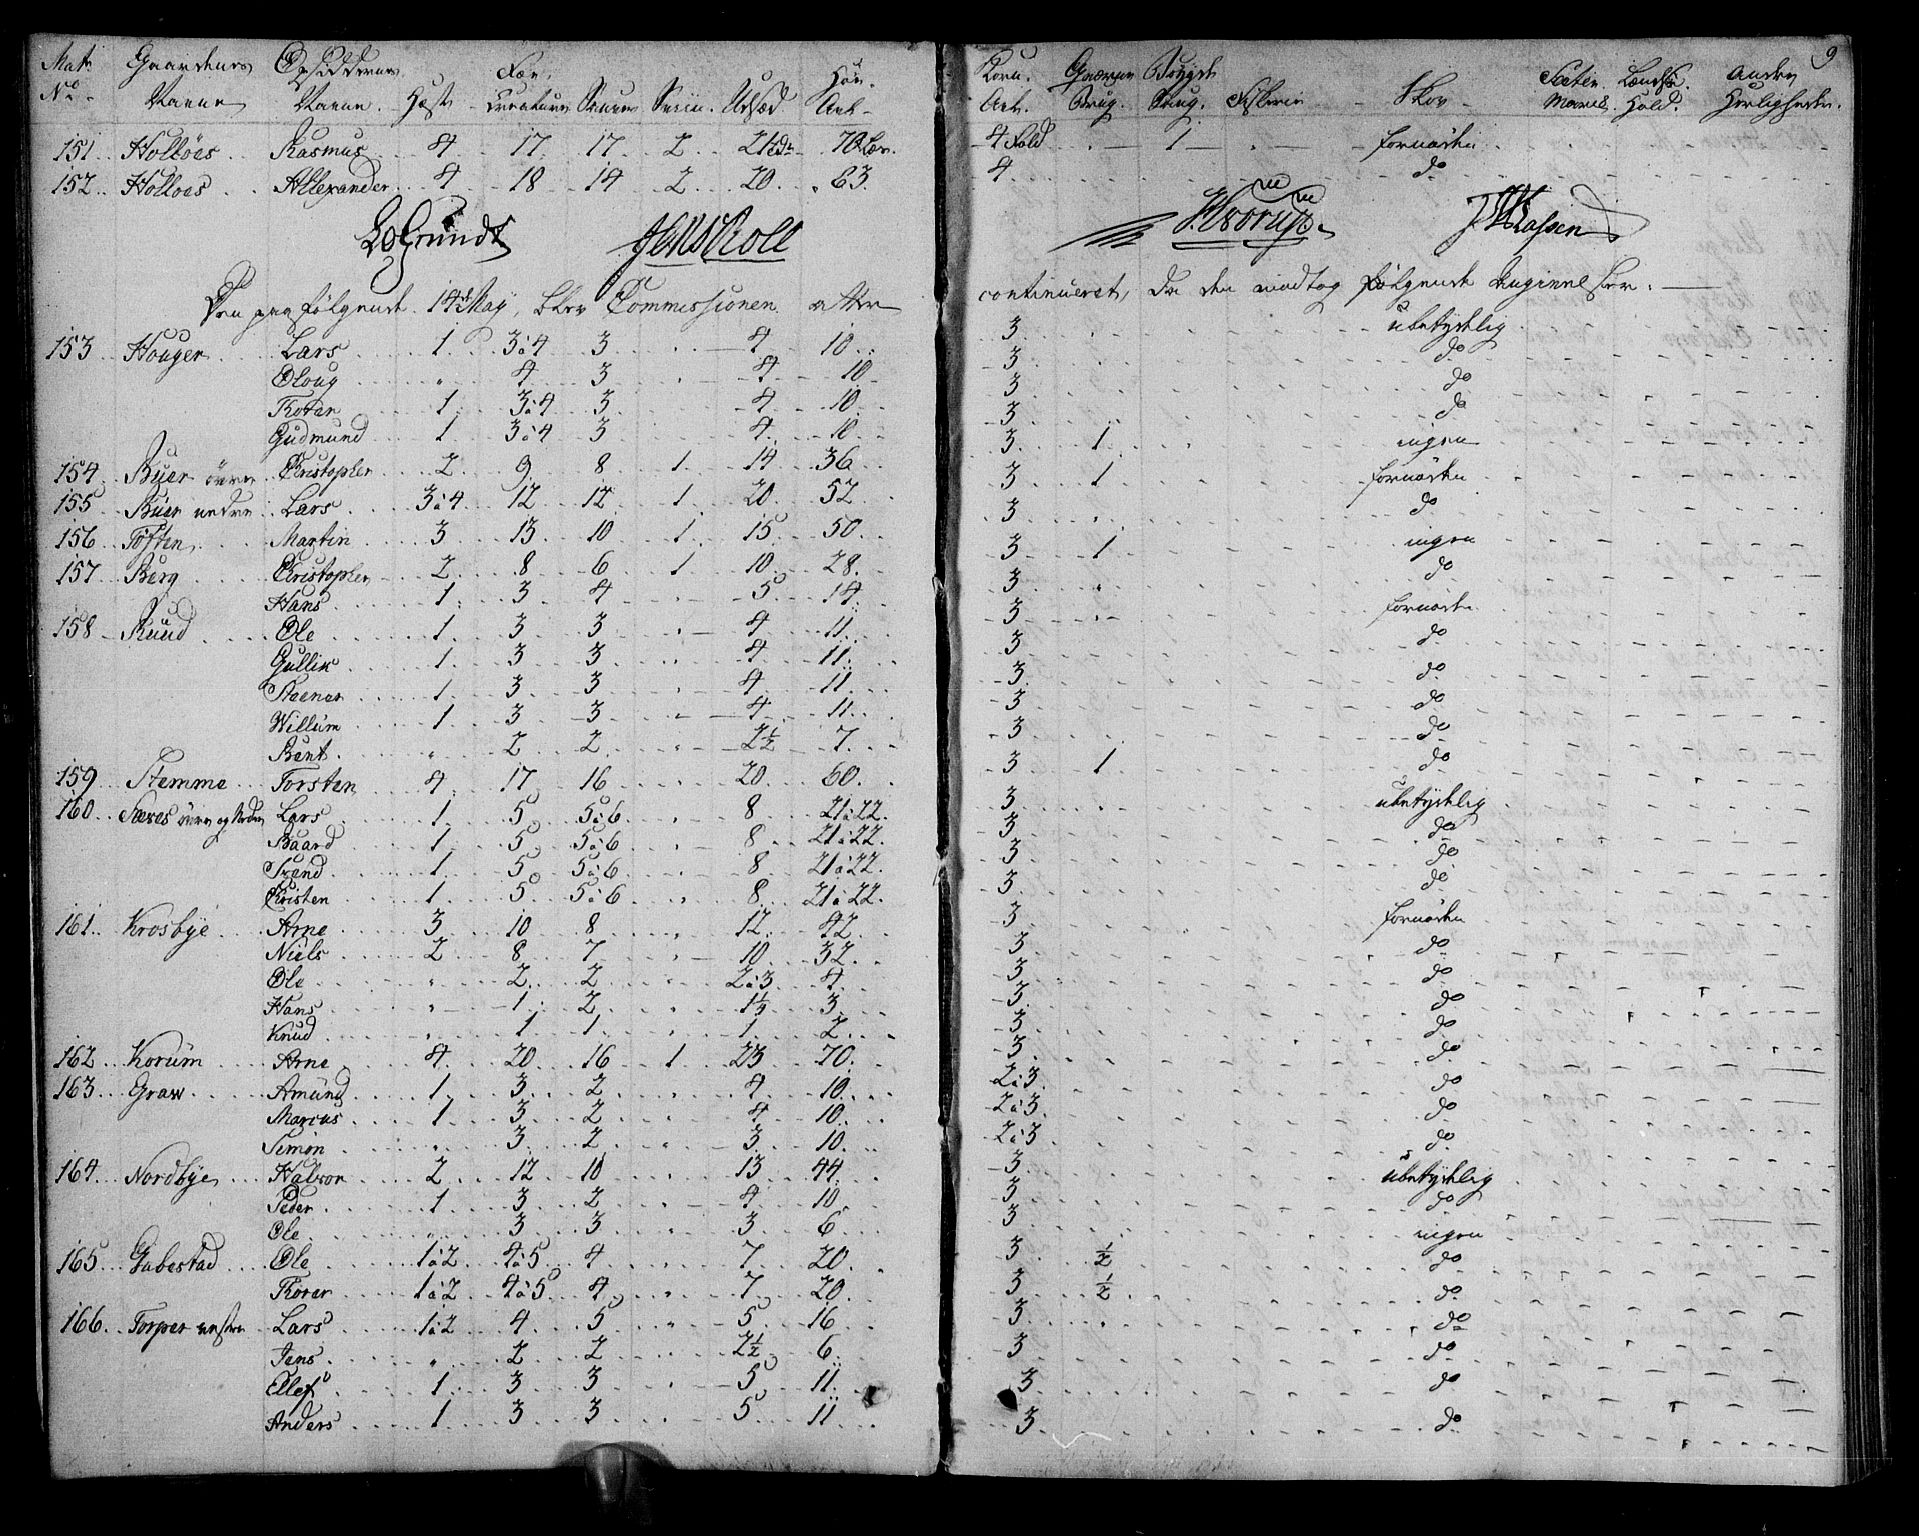 Mat: Gaardenes Opsiddernes Fæe Høe
No Navne Navne Heste Creature Sauer Sviin Udsæd Avl
151 Holløes Rasmus 4 17 17 2 21 Tdr 70 Læs
152 Holloes Allexander 4 18 14 2 20 63
LoGrundt Jens Roll
Den paafølgende 14de May, blev Commissionen atter
153 Houger Lars 1 3 à 4 3 4 10
Oloug " 4 3 4 10
Torer 1 3 à 4 3 4 10
Gudmund 1 3 à 4 3 4 10
154 Buer øvre Christopher 2 9 8 1 14 36
155 Buer nedre Lars 3 à 4 12 12 1 20 52
156 Toften Martin 3 13 10 1 15 50
157 Berg Christopher 2 8 6 1 10 28
Hans 1 3 4 5 14
158 Ruud Ole 1 3 3 4 11
Gullik 1 3 3 4 11
Steener 1 3 3 4 11
Willum 1 3 3 4 11
Bent " 2 2 2½ 7
159 Stemme Torsten 4 17 16 20 60
160 Næres øvre og Nedre Lars 1 5 5 à 6 8 21 à 22
Baard 1 5 5 à 6 8 21 à 22
Trond 1 5 5 à 6 8 21 à 22
Christen 1 5 5 à 6 8 21 à 22
161 Krosbye Arne 3 10 8 12 42
Niels 2 8 7 10 32
Ole " 2 2 2 à 3 4
Hans " 1 2 1½ 3
Knud " 1 1 1 2
162 Korum Arne 4 20 16 1 23 70
163 Graw Amund 1 3 2 4 10
Marcus 1 3 2 4 10
Simon " 3 2 3 10
164 Nordbye Halvor 2 12 10 13 44
Peder 1 3 2 4 10
Ole " 3 3 3 6
165 Gabestad Ole 1 à 2 4 à 5 4 7 20
Torer 1 à 2 4 à 5 4 7 20
166 Torper vestre Lars 1 à 2 4 5 5 16
Jens " 2 2 2½ 6
Ellef 1 3 3 5 11
Anders 1 3 3 5 11
9
Korn Qværne Bøygde Sæter Andre
Avl Brug Brug Fiskerie Skov Hold Herligheder
4 Fold 1 fornøden
4 do
continueret, da den modtog følgende Angivelser.
3 ubetydelig
3 do
3 do
3 do
3 1 ingen
3 1 fornøden
3 do
3 1 ingen
3 do
3 fornøden
3 do
3 do
3 do
3 do
3 1 do
3 ubetydelig
3 do
3 do
3 do
3 fornøden
3 do
3 do
3 do
3 do
3 do
2 à 3 do
2 à 3 do
2 à 3 do
3 ubetydelig
3 do
3 ingen
3 ½ do
3 ½ do
3 do
3 do
3 do
3 do